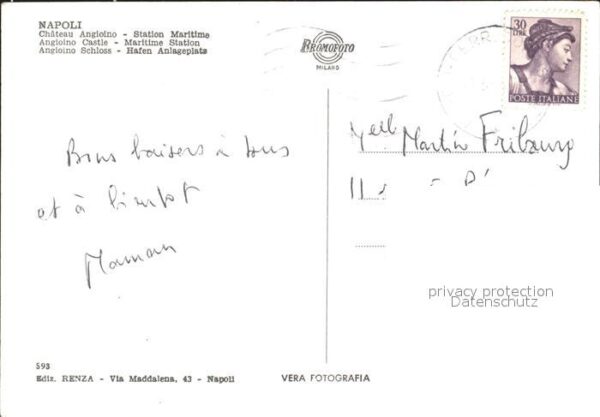 NAPOLI
Château Angioino - Station Maritime
Angioino Castle - Maritime Station
Angioino Schloss - Hafen Anlageplats
BROMOFOTO
MILANO
30
LIRE
POSTE ITALIANE
Bons baisers à tous
et à bientot
Maman
Martin Fribourg
11
privacy protection
Datenschutz
593
Ediz. RENZA - Via Maddalena, 43 - Napoli
VERA FOTOGRAFIA